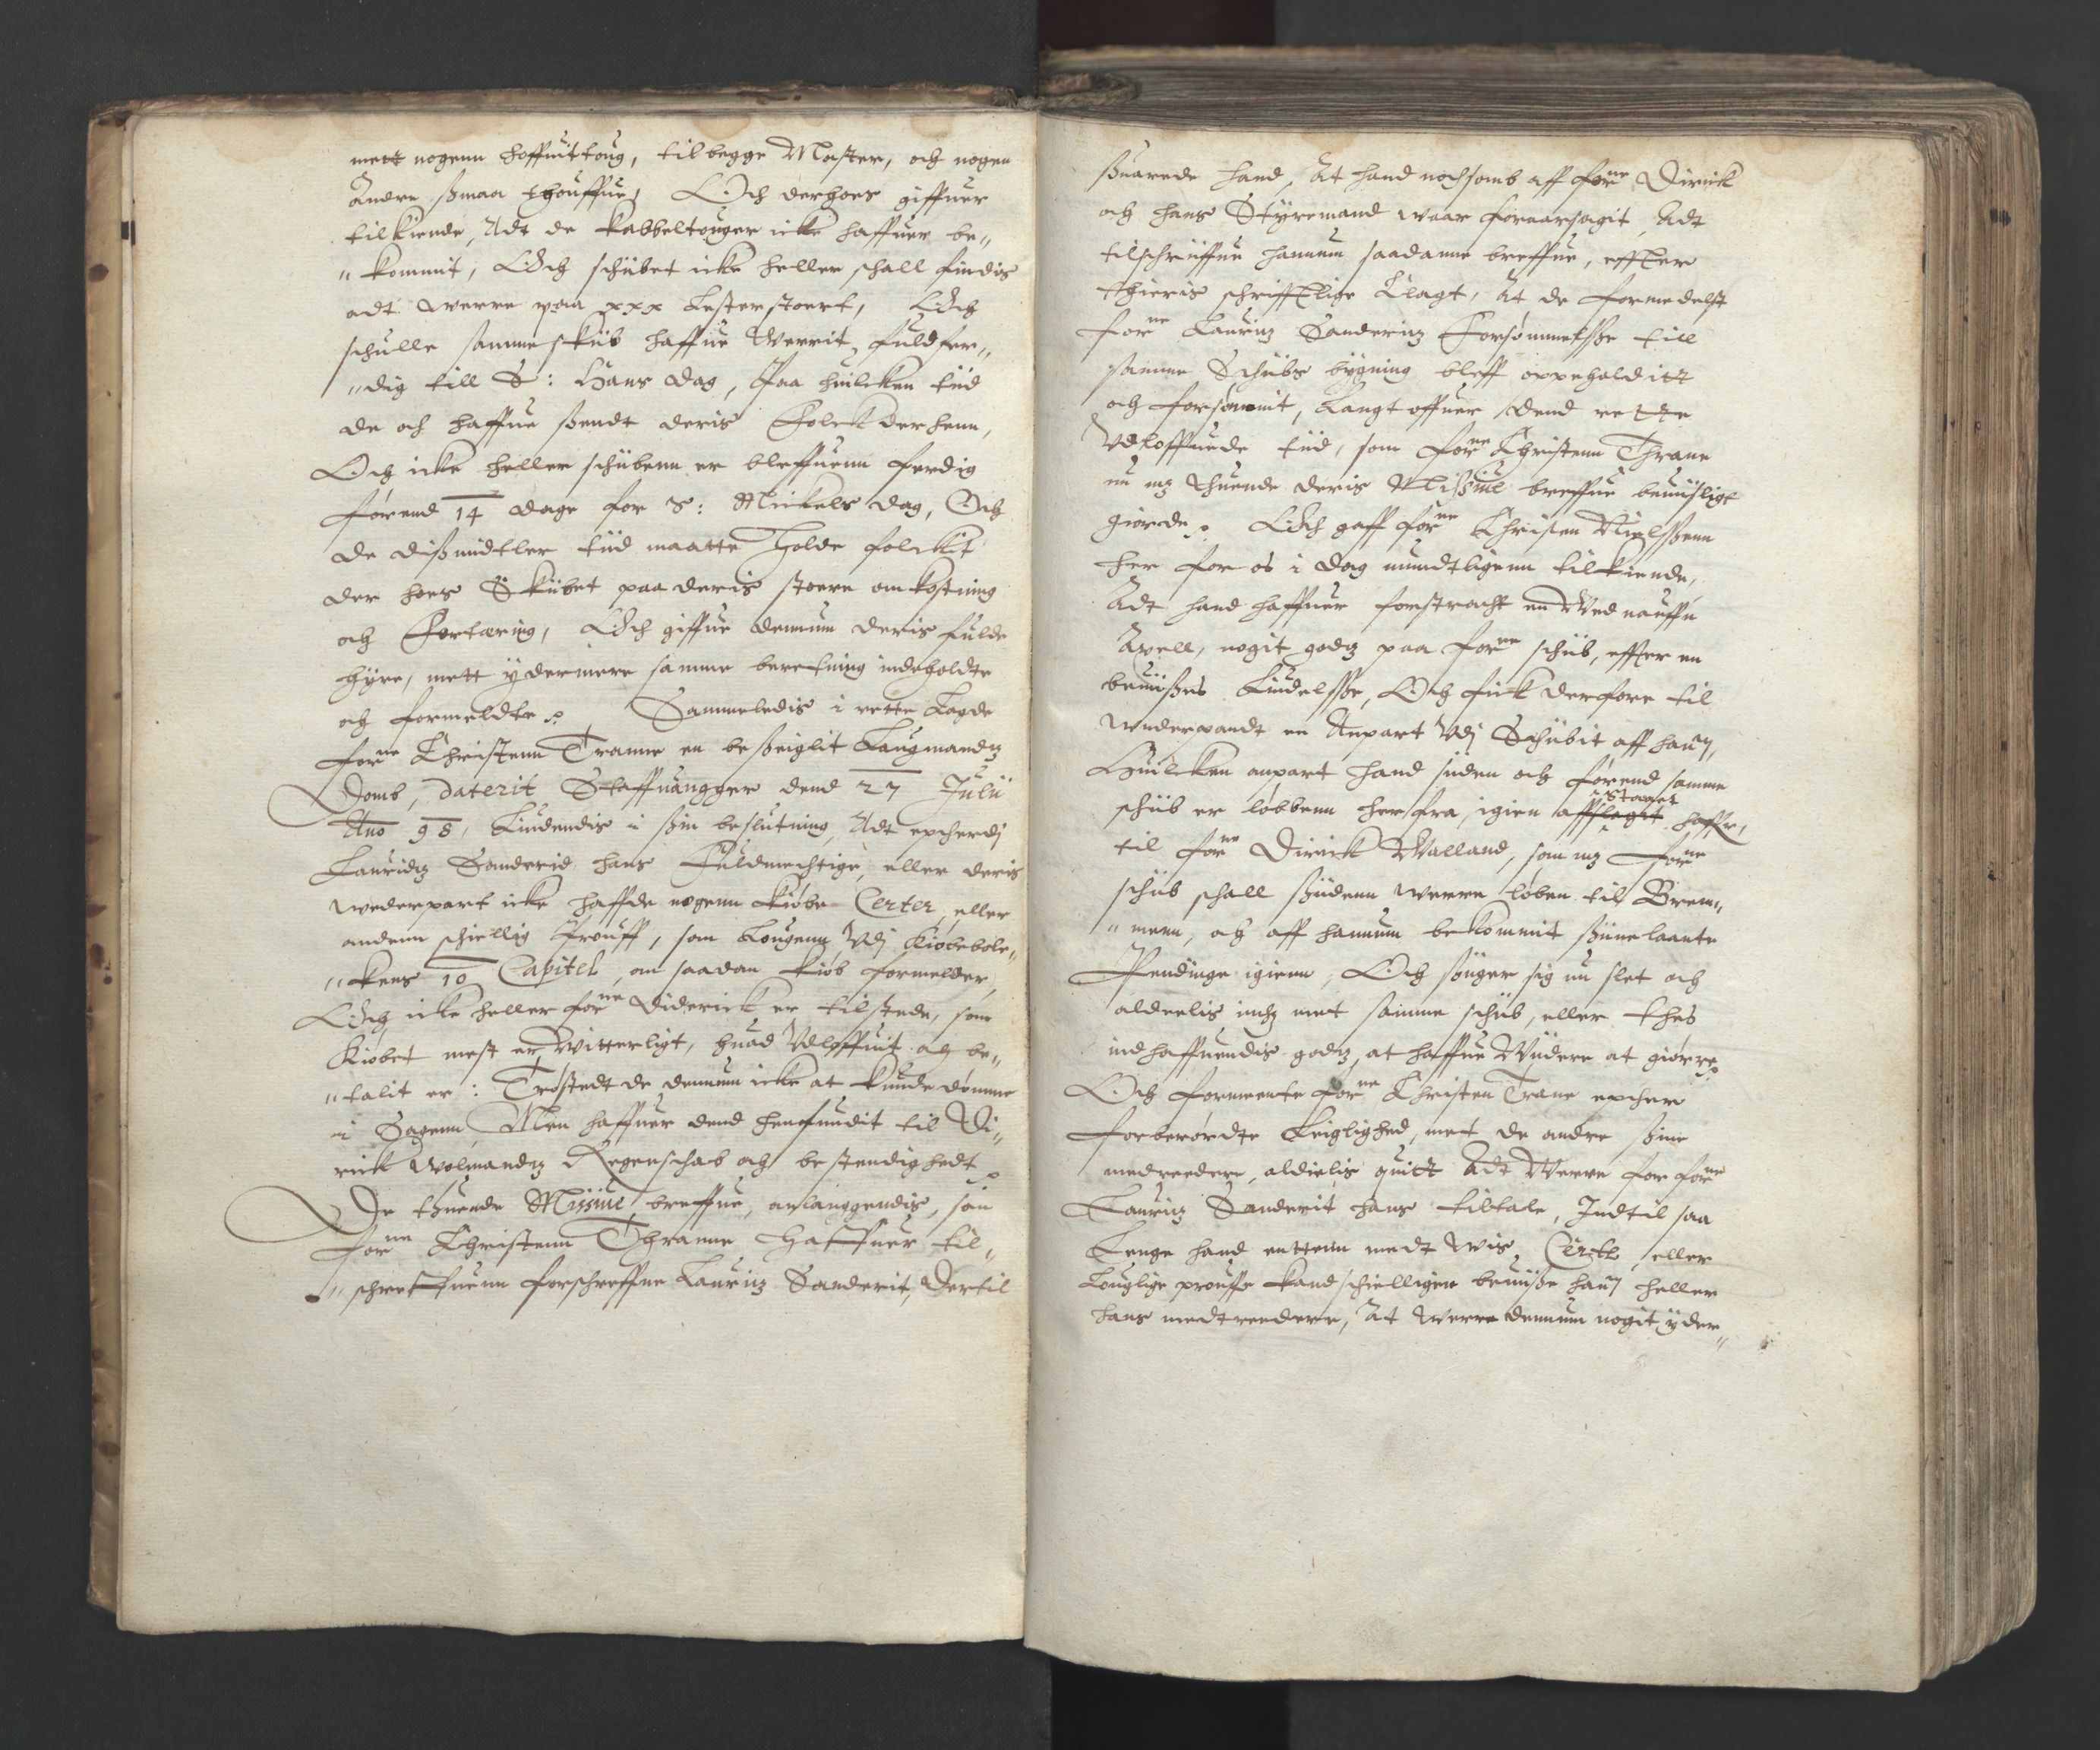 mett nogenn hoffuittoug, til begge Master, och nogen
Andre smaa thouffue, Och derhoes giffuer
tilkiende, Adt de kabbeltouger icke haffuer be„
„kommit, Och schübet icke heller schall findis
adt werre paa xxx Lester stoert, Och
schulle samme skib haffue Werrit fuldfer„
„dig till S: Hans dag, Paa huilcken tiid
de och haffue ßendt deris Folck der henn,
Och icke heller schübenn er bleffuenn ferdig
førend 14 dage for S: Mickels dag, Och
de dißmidtler tiid maatte Holde folckit
der hoes Skibet paa deris stoere omkostning
och Fortæring, Och giffue dennum deris fulde
hyre, mett ydermere samme beretning indeholdte
och formeldte. Sammeledis i rette Lagde
forne Christenn Tranne en beßeiglit Laugmandz
Domb, Daterit Staffuangger dend 27 Julii
Ano 98, Liudendis i ßin beslutning, Adt epcherdj
Lauridz Sanderid hans Fuldmechtige, eller deris
wederpart icke haffde nogenn kiøbe Certer, eller
andenn schiellig Prouff, som Lougenn Vdj Kiøbebolc„
„kens 10 Capitel, om saadan kiøb formelder,
Och icke heller forne Diderick er tilstede, som
Kiøbet mest er Witterligt, huad Vdloffuit och be„
„talit er: Trøstedt de dennum icke at kunde dømme
i Sagenn, Men haffuer dend henfundit til Di„
rick Wolmandz Regenschab och bestendighedt.
De thuende Missiue breffue, anlanggendis, som
forne Christenn Thranne Haffuer til„
„schreffuenn forschreffne Lauriz Sanderit, Dertil
ßuarede hand, At hand nochsomb aff forne Dirick
och hans Styremand waar foraarsagit, Adt
tilschriffue hannum saadanne breffue, effter
thieris schrifftlige Clagt, At de formedelst
forne Lauriz Sanderiz Forsømmelsße till
samme Schübs bygning bleff oppeholditt
och forsømmit, Langt offuer dend rette
Vdloffuede tiid, som forne Christenn Thrane
nu mz thuende deris Missiue breffue beuisligt
giorde. Och gaff forne Christen Nielßenn
her for os i dag mundtligenn tilkiende,
Adt hand haffuer forstracht en Wed nauffn
Awell, nogit godz paa forne schib, effter en
beuißes Liudelsße, Och fick derfore til
wnderpandt en Anpart Vdj Schübit aff han,
Huilcken anpart hand siiden och førend samme
schib er løbbenn her fra, igien afflagt Staaet haffr,
til forne Dirick Walland, som mz forne
schib schall ßiidenn werre løben til Brem„
„menn, och aff hannum bekommit ßiine laante
Pendinge igienn, Och søuger sig nu slet och
alderlis inchz met samme schib, eller thes
indhaffuendis godz, at haffue Wiidere at giørre.
Och formeente forne Christen Trane epcher
forberørdte Leiglighed, met de andre ßine
medreedere, aldielis quitt Adt Werre for forne
Lauriz Sanderit hans tiltale, Indtil saa
Lenge hand enttenn medt wis Certe, eller
Louglige prouffe kand schielligen beuiße han heller
hans medtreedere, At werre dennum nogit yder„